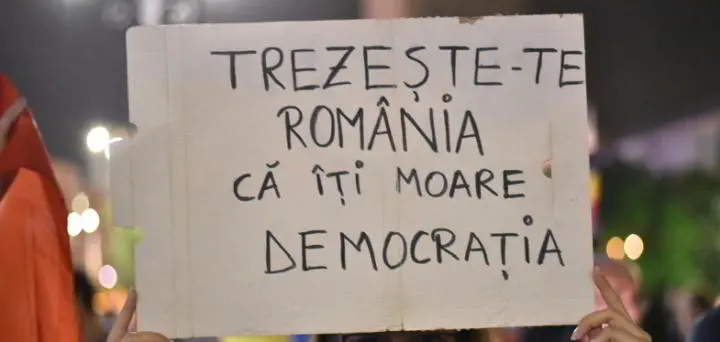 TREZEȘTE-TE
ROMÂNIA
CĂ ÎȚI MOARE
DEMOCRAȚIA